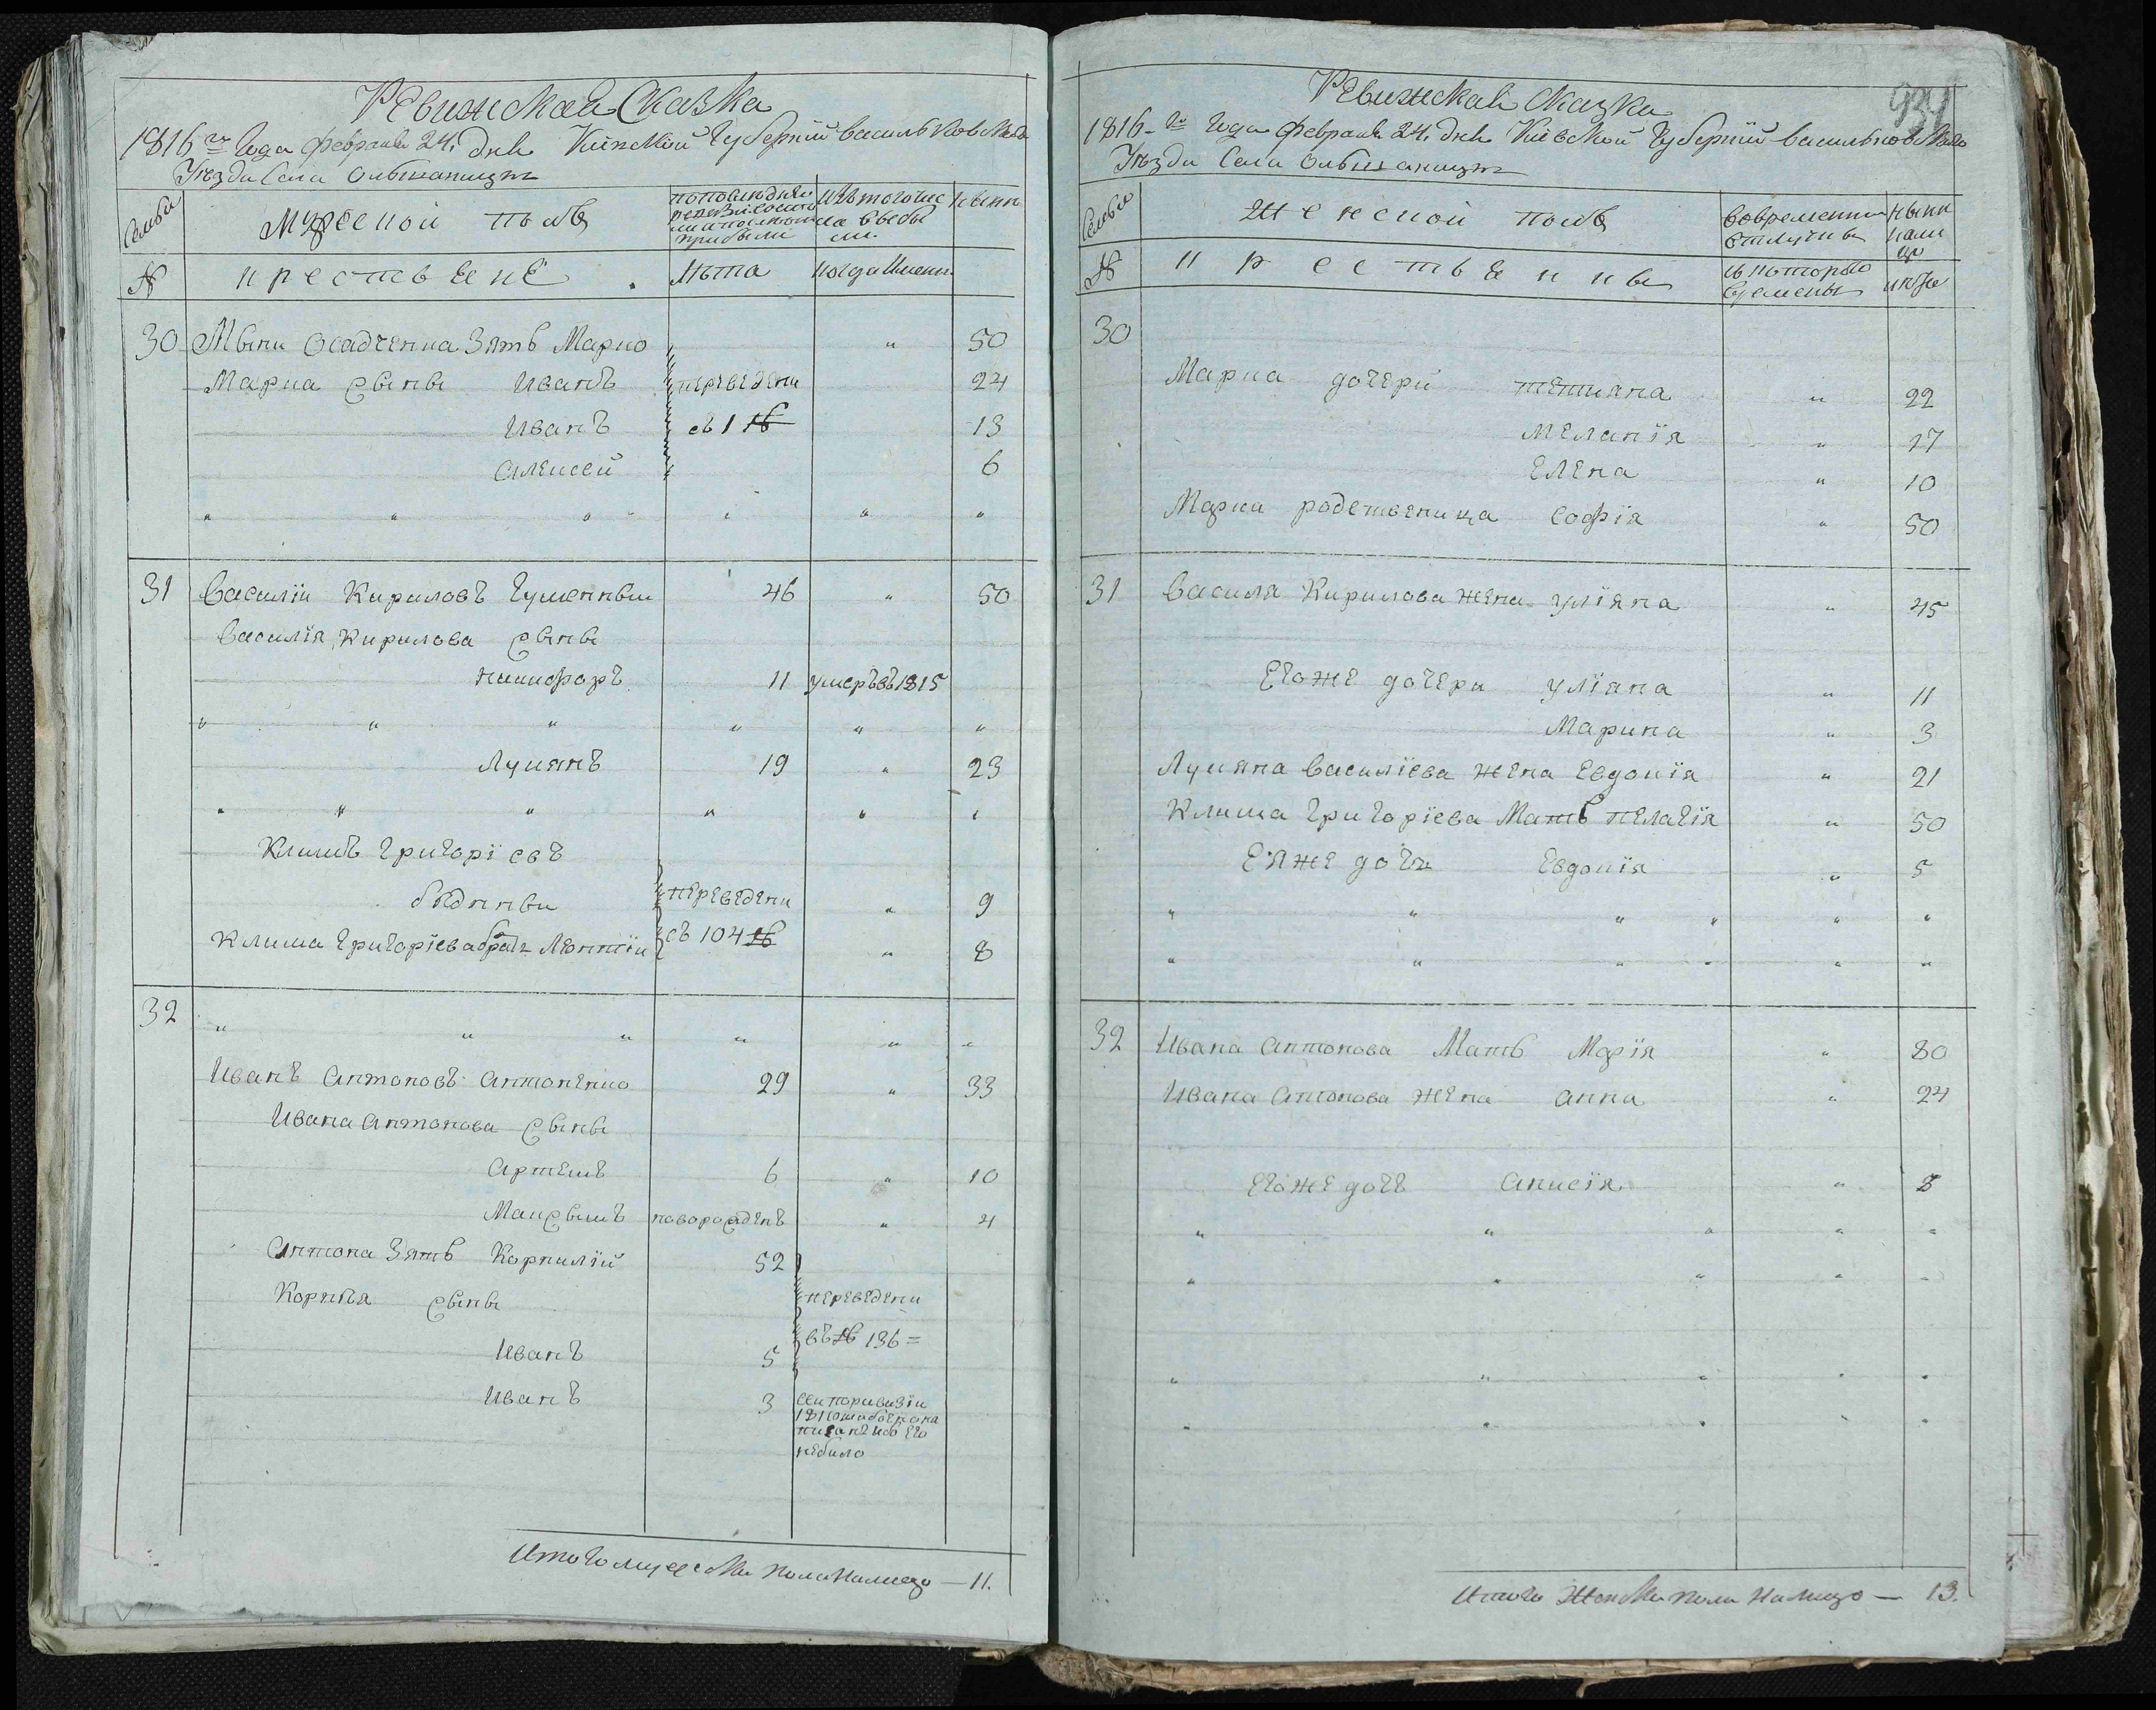 Ревижская Сказка
1816 го Года Февраля 24. дня Киевской Губерніи васильковскаго
Уезда Села Ольшаницы
Семьи
Мужеской полъ
по последней ревизіи состояли и после того прибыли
изъ того числа выбыли
ныне
№
крестьяне
лета
когда именно
30 Мыки осадченка Зять Марко " 50
Марка сыны Иванъ переведены 24
Иванъ съ 1 № 13
алексей 6
" " " " " "
31 Василіи Кириловъ Гуменныи 46 " 50
Василія Кирилова сыны
никифоръ 11 умеръ въ 1815
" " " " " "
Лукянъ 19 " 23
" " " " " "
Климъ григоріевъ
бедныи переведены " 9
клима григоріева братъ Леонтіи съ 104 № " 8
32 " " " " " "
Иванъ антоновъ антоненко 29 " 33
Ивана антонова сыны
артемъ 6 " 10
Максымъ новорожденъ " 4
антона Зять Корнилій 52
Корнея сыны переведены
въ № 136 =
Иванъ 5
Иванъ 3 сеи по ривизіи
181 ошибочно на
писанъ ибо его
небило
Итого мужеска пола налицо — 11.
931
Ревижская сказка
1816-го Года Февраля 24. дня Киевской Губерніи васильковскаго
Уезда Села ольшаницы
Семьи
Женской полъ
вовременни отлучьки
ныни нали цо
№
крестьянки
съ которого времены
лета
30
Марка дочери тетиана " 22
меланія " 17
елена " 10
Марка родственица софія " 50
31 василя Кирилова жена уліяна " 45
егоже дочери уліяна " 11
Марина " 3
Лукяна василіева жена евдокія " 21
Клима григоріева Мать пелагія " 50
еяже дочь евдокія " 5
" " " " " "
" " " " " "
32 Ивана антонова Мать Марія " 80
Ивана антонова жена анна " 24
егоже дочь анисія " 8
" " " " "
" " " " "
" " " " "
" " " " "
Итого Женска пола налицо — 13.